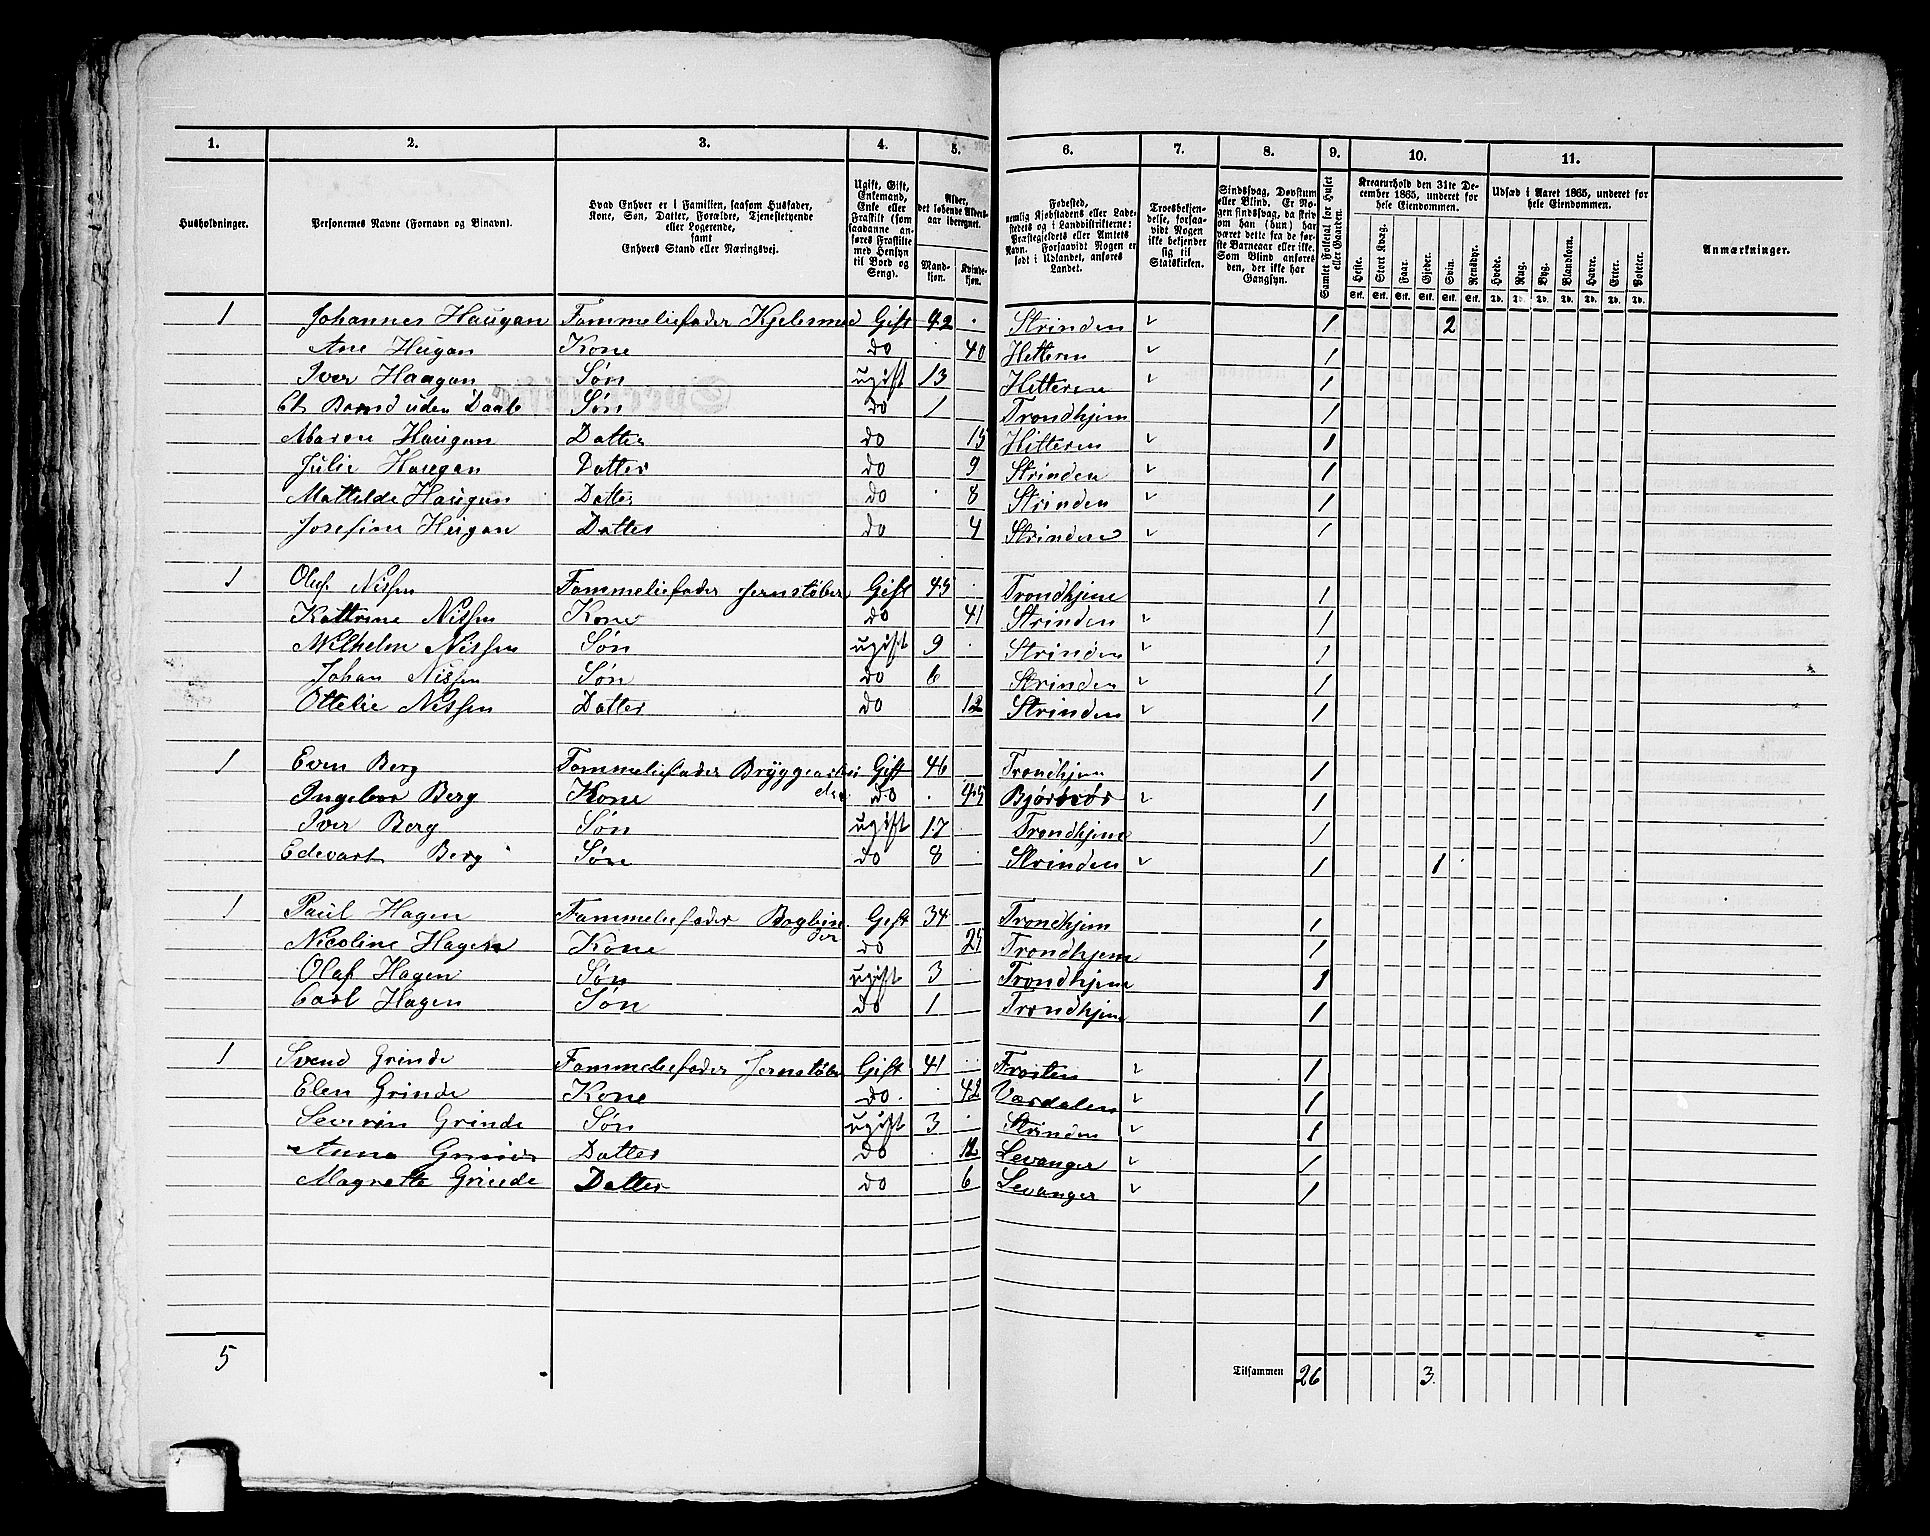 1. 2. 3. 4. 5. 6. 7. 8. 9. 10. 11.
Husholdninger.
Personernes Navne (Fornavn og Binavn).
Hvad Enhver er i Familien, saasom Husfader, Kone, Søn, Datter, Forældre, Tjenestetyende eller Logerende, samt Enhvers Stand eller Næringsvei.
Ugift, Gift, Enkemand, Enke eller Fraskilt (som saadanne anføres Fraskilte med Hensyn til Bord og Seng).
Alder, det løbende Alders-aar iberegnet.
Mandkjøn. Kvindekjøn.
Fødested, nemlig Kjøbstadens eller Ladestedets og i Landdistrikterne: Præstegjeldets eller Amtets Navn. Forsaavidt Nogen er født i Udlandet, anføres Landet.
Troesbekjendelse, forsaavidt Nogen ikke bekjender sig til Statskirken.
Sindssvag, Døvstum eller Blind. Er Nogen sindssvag, da skrives om han (hun) har været dette fra de første Barneaar eller ikke. Som Blind anføres den, der ikke har Gangsyn.
Samlet Folketal for Huset eller Gaarden.
Kreaturhold den 31te December 1865, underet for hele Eiendommen.
Heste. Stort Kvæg. Faar. Gjeder. Svin. Rensdyr.
Stk. Stk. Stk. Stk. Stk. Stk.
Udsæd i Aaret 1865, underet for hele Eiendommen.
Hvede. Rug. Byg. Blandkorn. Havre. Erter. Poteter.
Td. Td. Td. Td. Td. Td. Td.
Anmærkninger.
1 Johannes Haugan Fammeliefader Kjelesmed Gift 42 Strinden 1 2
Ane Heigan Kone do 40 Hitteren 1
Iver Haagan Søn ugift 13 Hitteren 1
Et Barnd uden Daab Søn do 1 Trondhjem 1
Maren Haugan Datter do 15 Hitteren 1
Julie Haugan Datter do 9 Strinden 1
Mattilde Haugan Datter do 8 Strinden 1
Josefine Heigan Datter do 4 Strinden 1
1 Oluf Nissen Fammeliefader Jernstøber Gift 45 Trondhjem 1
Kattrine Nissen Kone do 41 Strinden 1
Wilhelm Nissen Søn ugift 9 Strinden 1
Johan Nissen Søn do 6 Strinden 1
Ottelie Nissen Datter do 12 Strinden 1
1 Even Berg Fammeliefader Gift 46 Trondhjem 1
Ingebor Berg Kone do 45 1
Iver Berg Søn ugift 17 Trondhjem 1
Edevart Berg Søn do 8 Strinden 1 1
1 Paul Hagen Fammeliefader Bogbinder Gift 34 Trondhjem 1
Nicoline Hagen Kone do 25 Trondhjem 1
Olaf Hagen Søn ugift 3 Trondhjem 1
Carl Hagen Søn do 1 Trondhjem 1
1 Svend Grinde Fammeliefader Jernstøber Gift 41 Frosten 1
Elen Grinde Kone do 42 Værdalen 1
Severin Grinde Søn ugift 3 Strinden 1
Anna Grinde Datter do 12 Levanger 1
Magrette Grinde Datter do 6 Levanger 1
5 Tilsammen 26 3